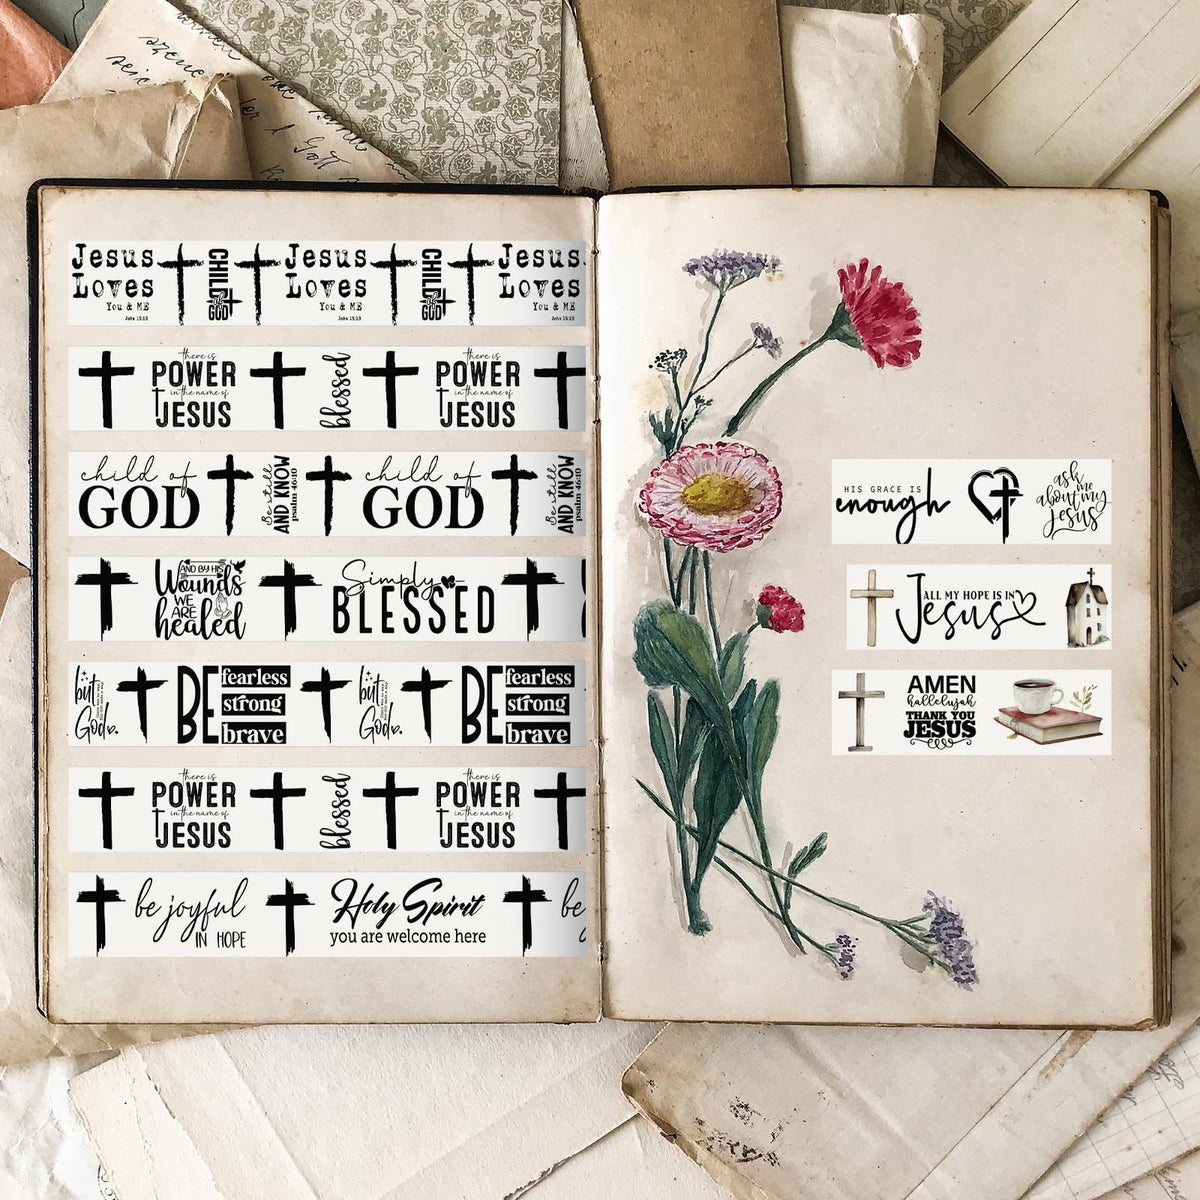 Jesus Loves You & ME John 15:13 CHILD OF GOD Jesus Loves You & ME John 15:13 CHILD OF GOD Jesus Loves You & ME John 15:13
there is
POWER
in the name of
JESUS
blessed
there is
POWER
in the name of
JESUS
child of
GOD
Be still
AND KNOW
psalm 46:10
child of
GOD
Be still
AND KNOW
psalm 46:10
AND BY HIS
Wounds
WE
ARE
healed
Simply
BLESSED
but
God
BE
fearless
strong
brave
but
God
BE
fearless
strong
brave
there is
POWER
in the name of
JESUS
blessed
there is
POWER
in the name of
JESUS
be joyful
IN HOPE
Holy Spirit
you are welcome here
be
HIS GRACE IS
enough
ask
me
about my
jesus
ALL MY HOPE IS IN
Jesus
AMEN
hallelujah
THANK YOU
JESUS